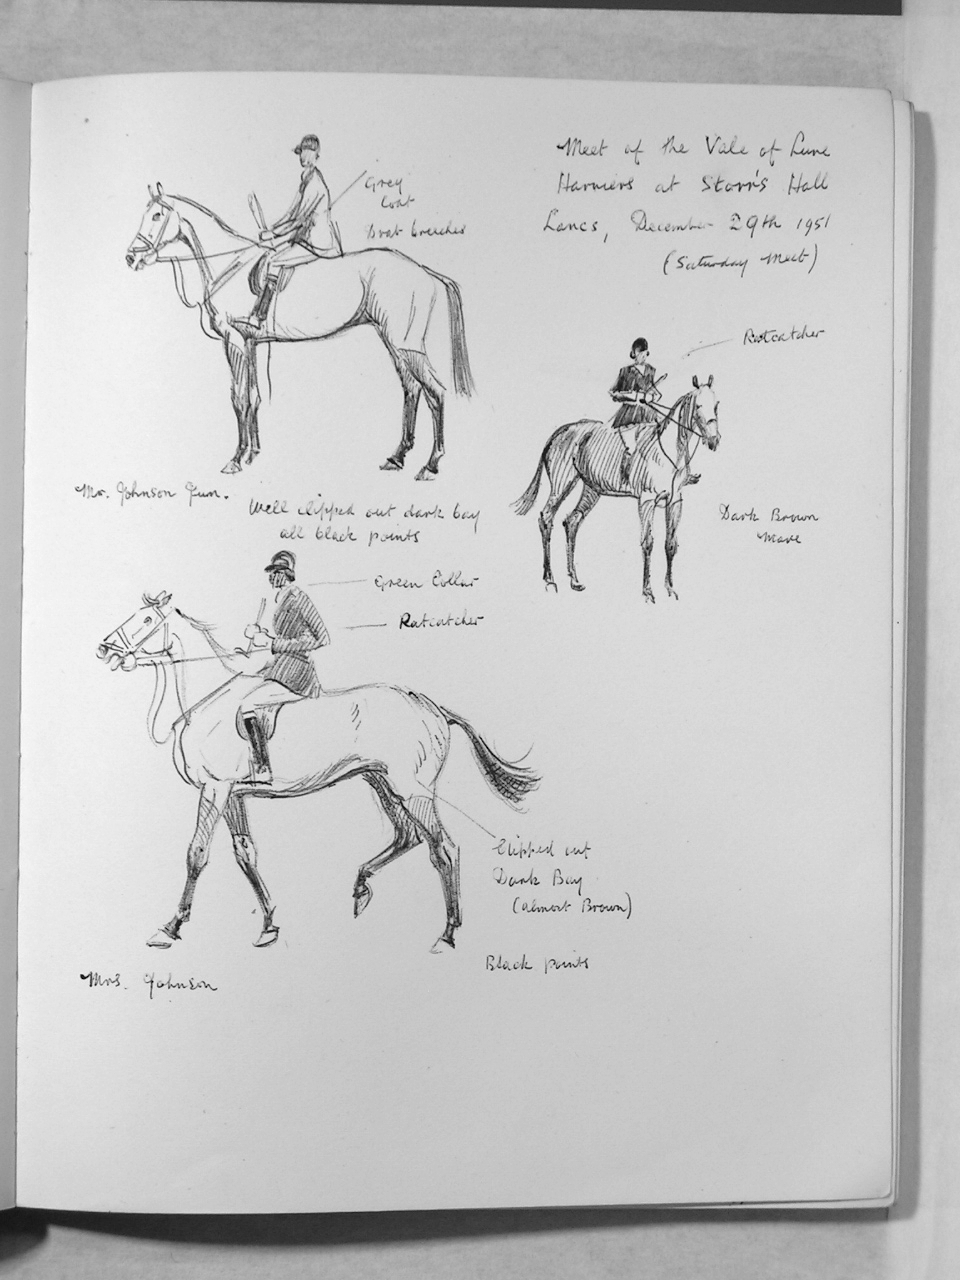 Meet of the Vale of Lune
Harriers at Storrs Hall
Lancs, December 29th 1951
(Saturday Meet)
Grey
Coat
Drab breeches
Ratcatcher
Mr. Johnson Jun.
Well clipped out dark bay
all black points
Dark Brown
Mare
Green Collar
Ratcatcher
Clipped out
Dark Bay
(almost Brown)
Black points
Mrs. Johnson